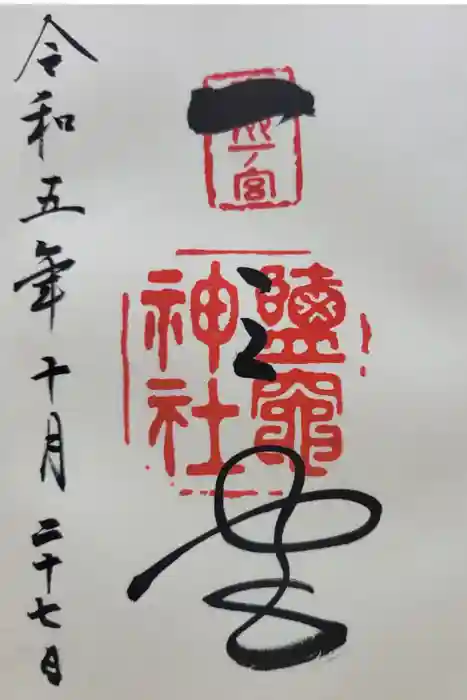 一ノ宮
一之宮
鹽竈
神社
令和五年十月二十七日